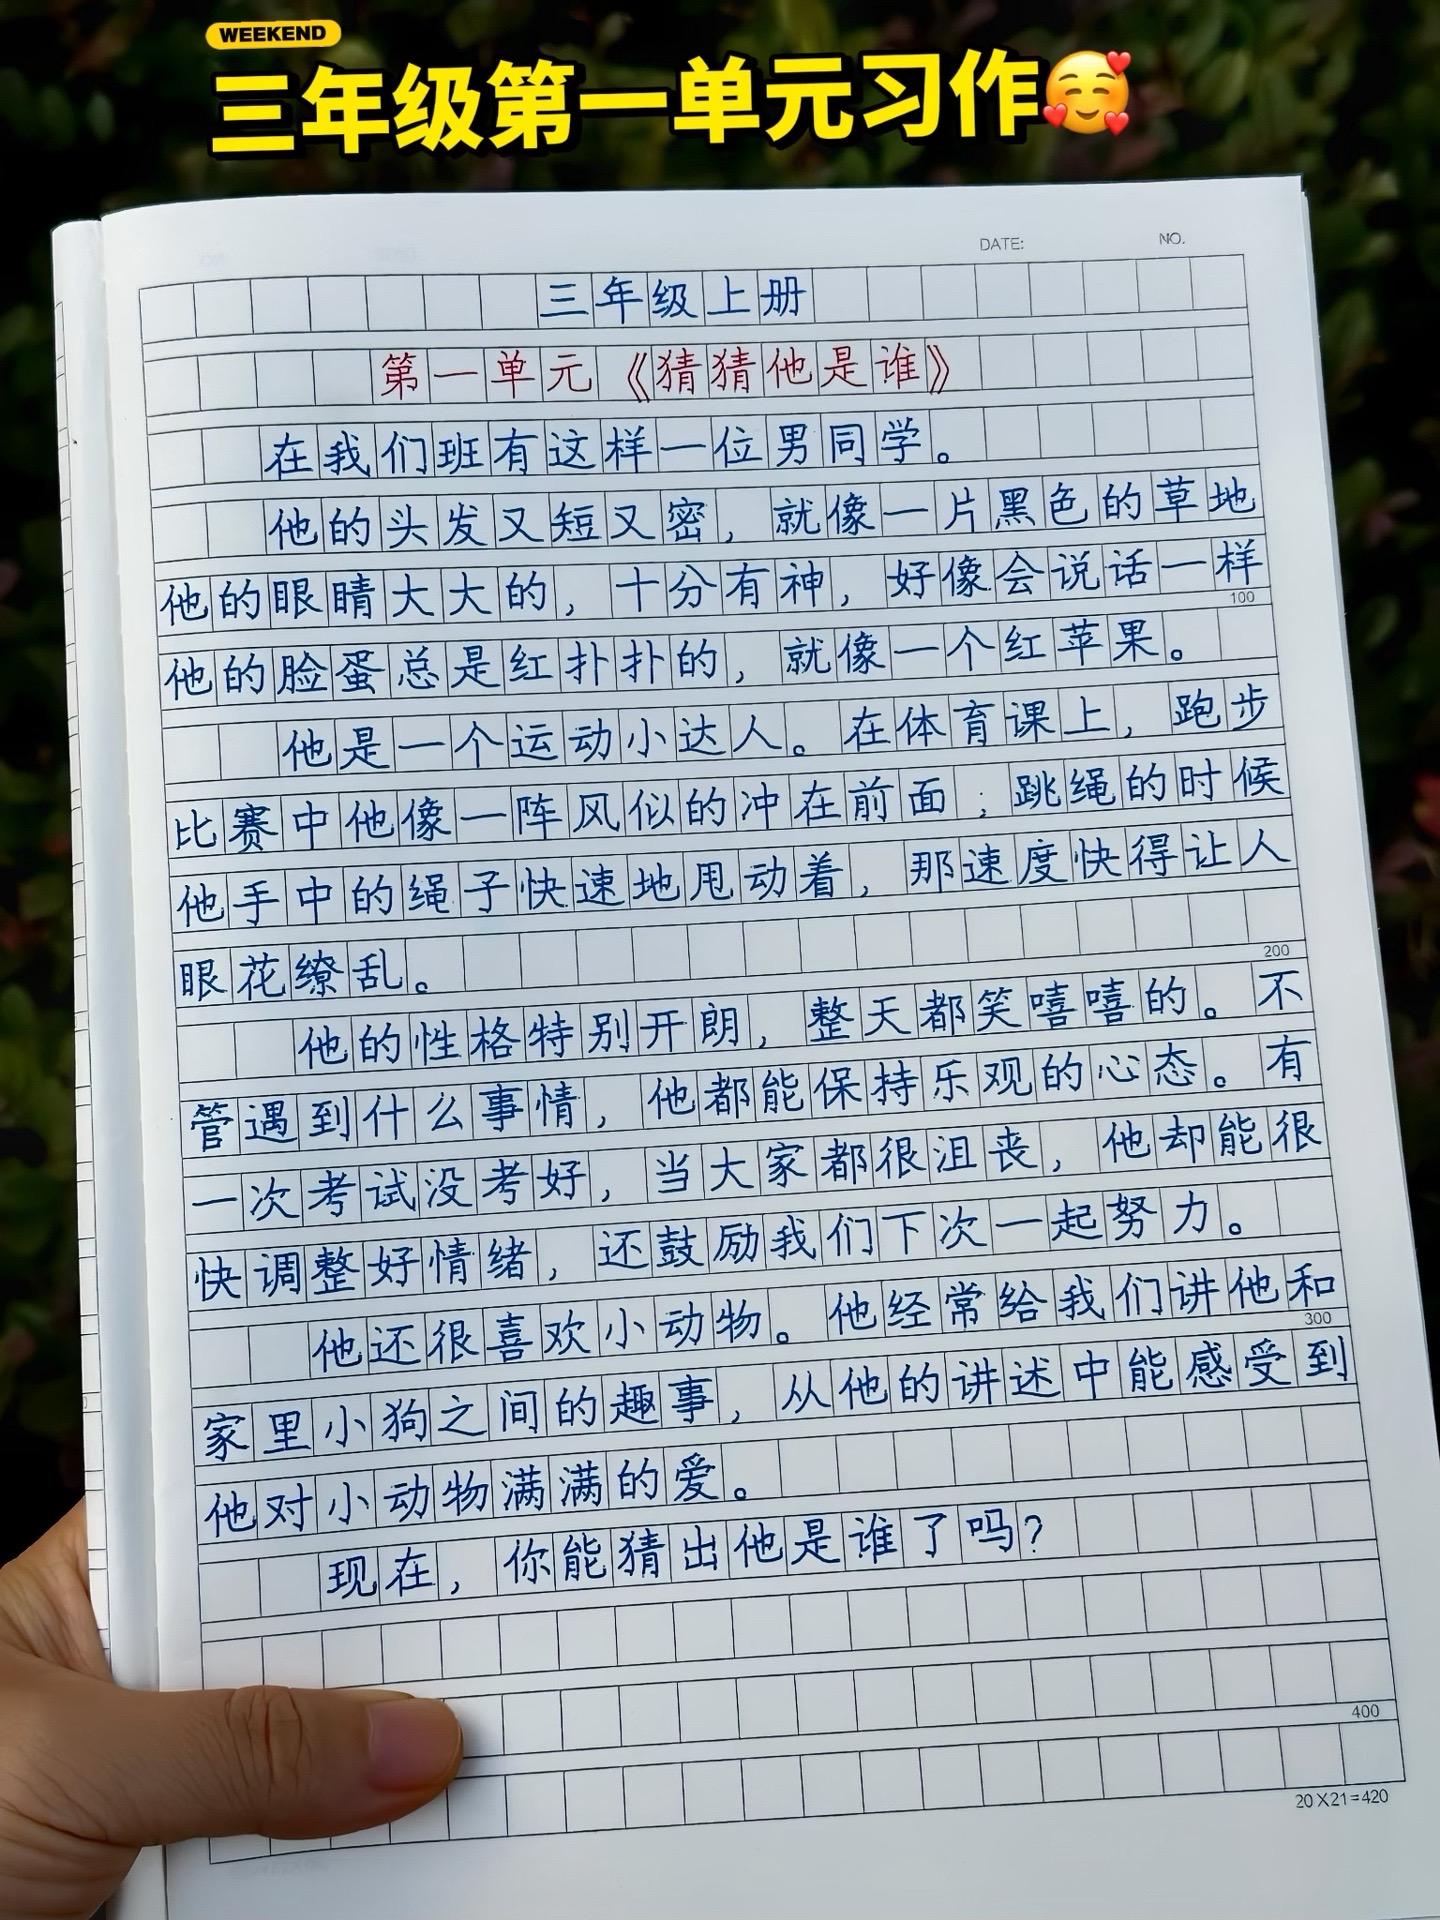 WEEKEND
三年级第一单元习作
DATE: NO.
三年级上册
第一单元《猜猜他是谁》
在我们班有这样一位男同学。
他的头发又短又密，就像一片黑色的草地
他的眼睛大大的，十分有神，好像会说话一样
100
他的脸蛋总是红扑扑的，就像一个红苹果。
他是一个运动小达人。在体育课上，跑步
比赛中他像一阵风似的冲在前面；跳绳的时候
他手中的绳子快速地甩动着，那速度快得让人
眼花缭乱。
200
他的性格特别开朗，整天都笑嘻嘻的。不
管遇到什么事情，他都能保持乐观的心态。有
一次考试没考好，当大家都很沮丧，他却能很
快调整好情绪，还鼓励我们下次一起努力。
他还很喜欢小动物。他经常给我们讲他和
300
家里小狗之间的趣事，从他的讲述中能感受到
他对小动物满满的爱。
现在，你能猜出他是谁了吗？
400
20×21=420